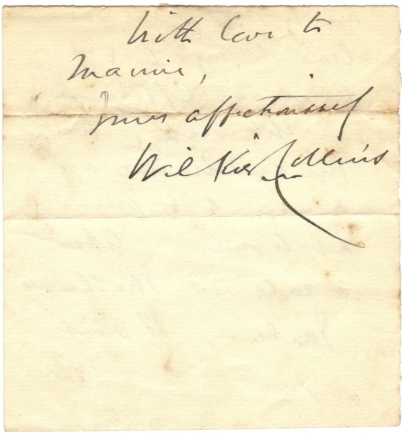 With love to
Mamie,
yours affectionately
Wilkie Collins